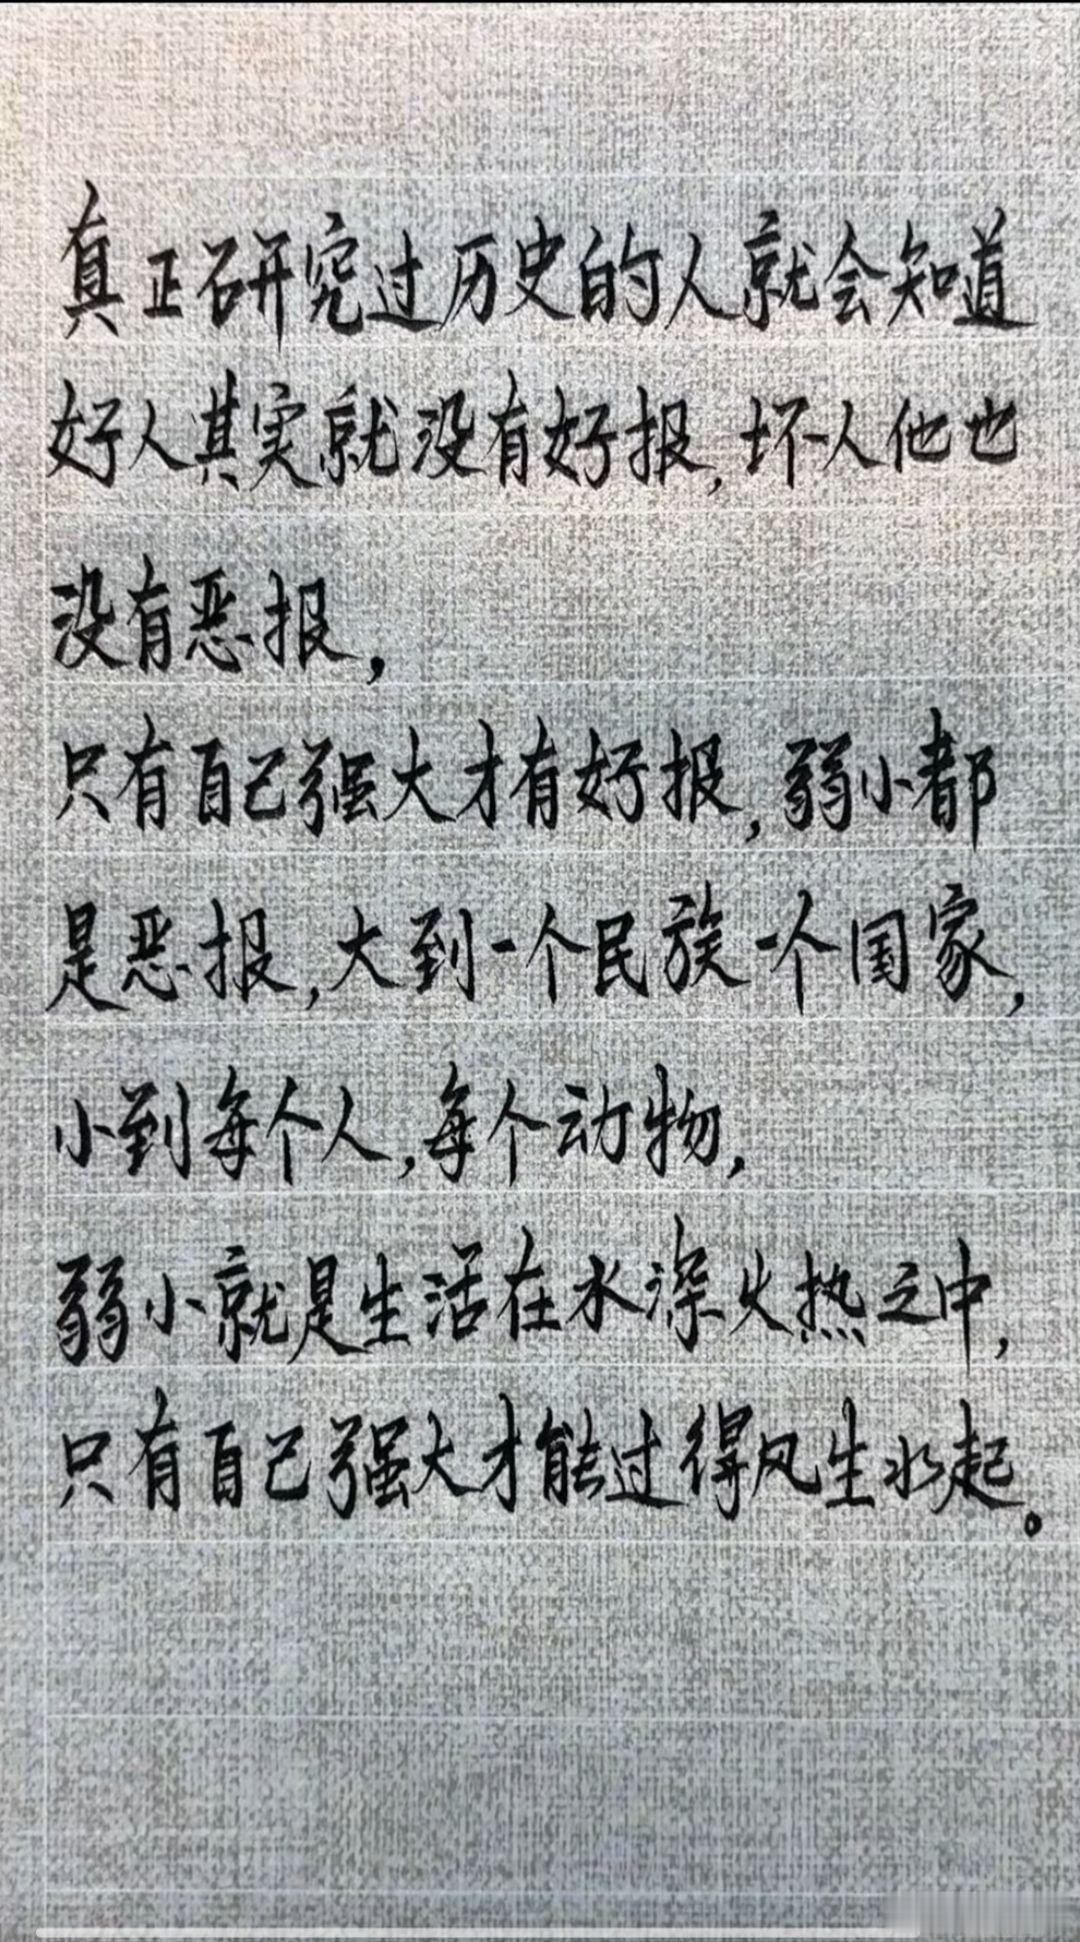 真正研究过历史的人就会知道
好人其实就没有好报,坏人他也
没有恶报,
只有自己强大才有好报,弱小都
是恶报,大到一个民族一个国家,
小到每个人,每个动物,
弱小就是生活在水深火热之中,
只有自己强大才能过得风生水起。